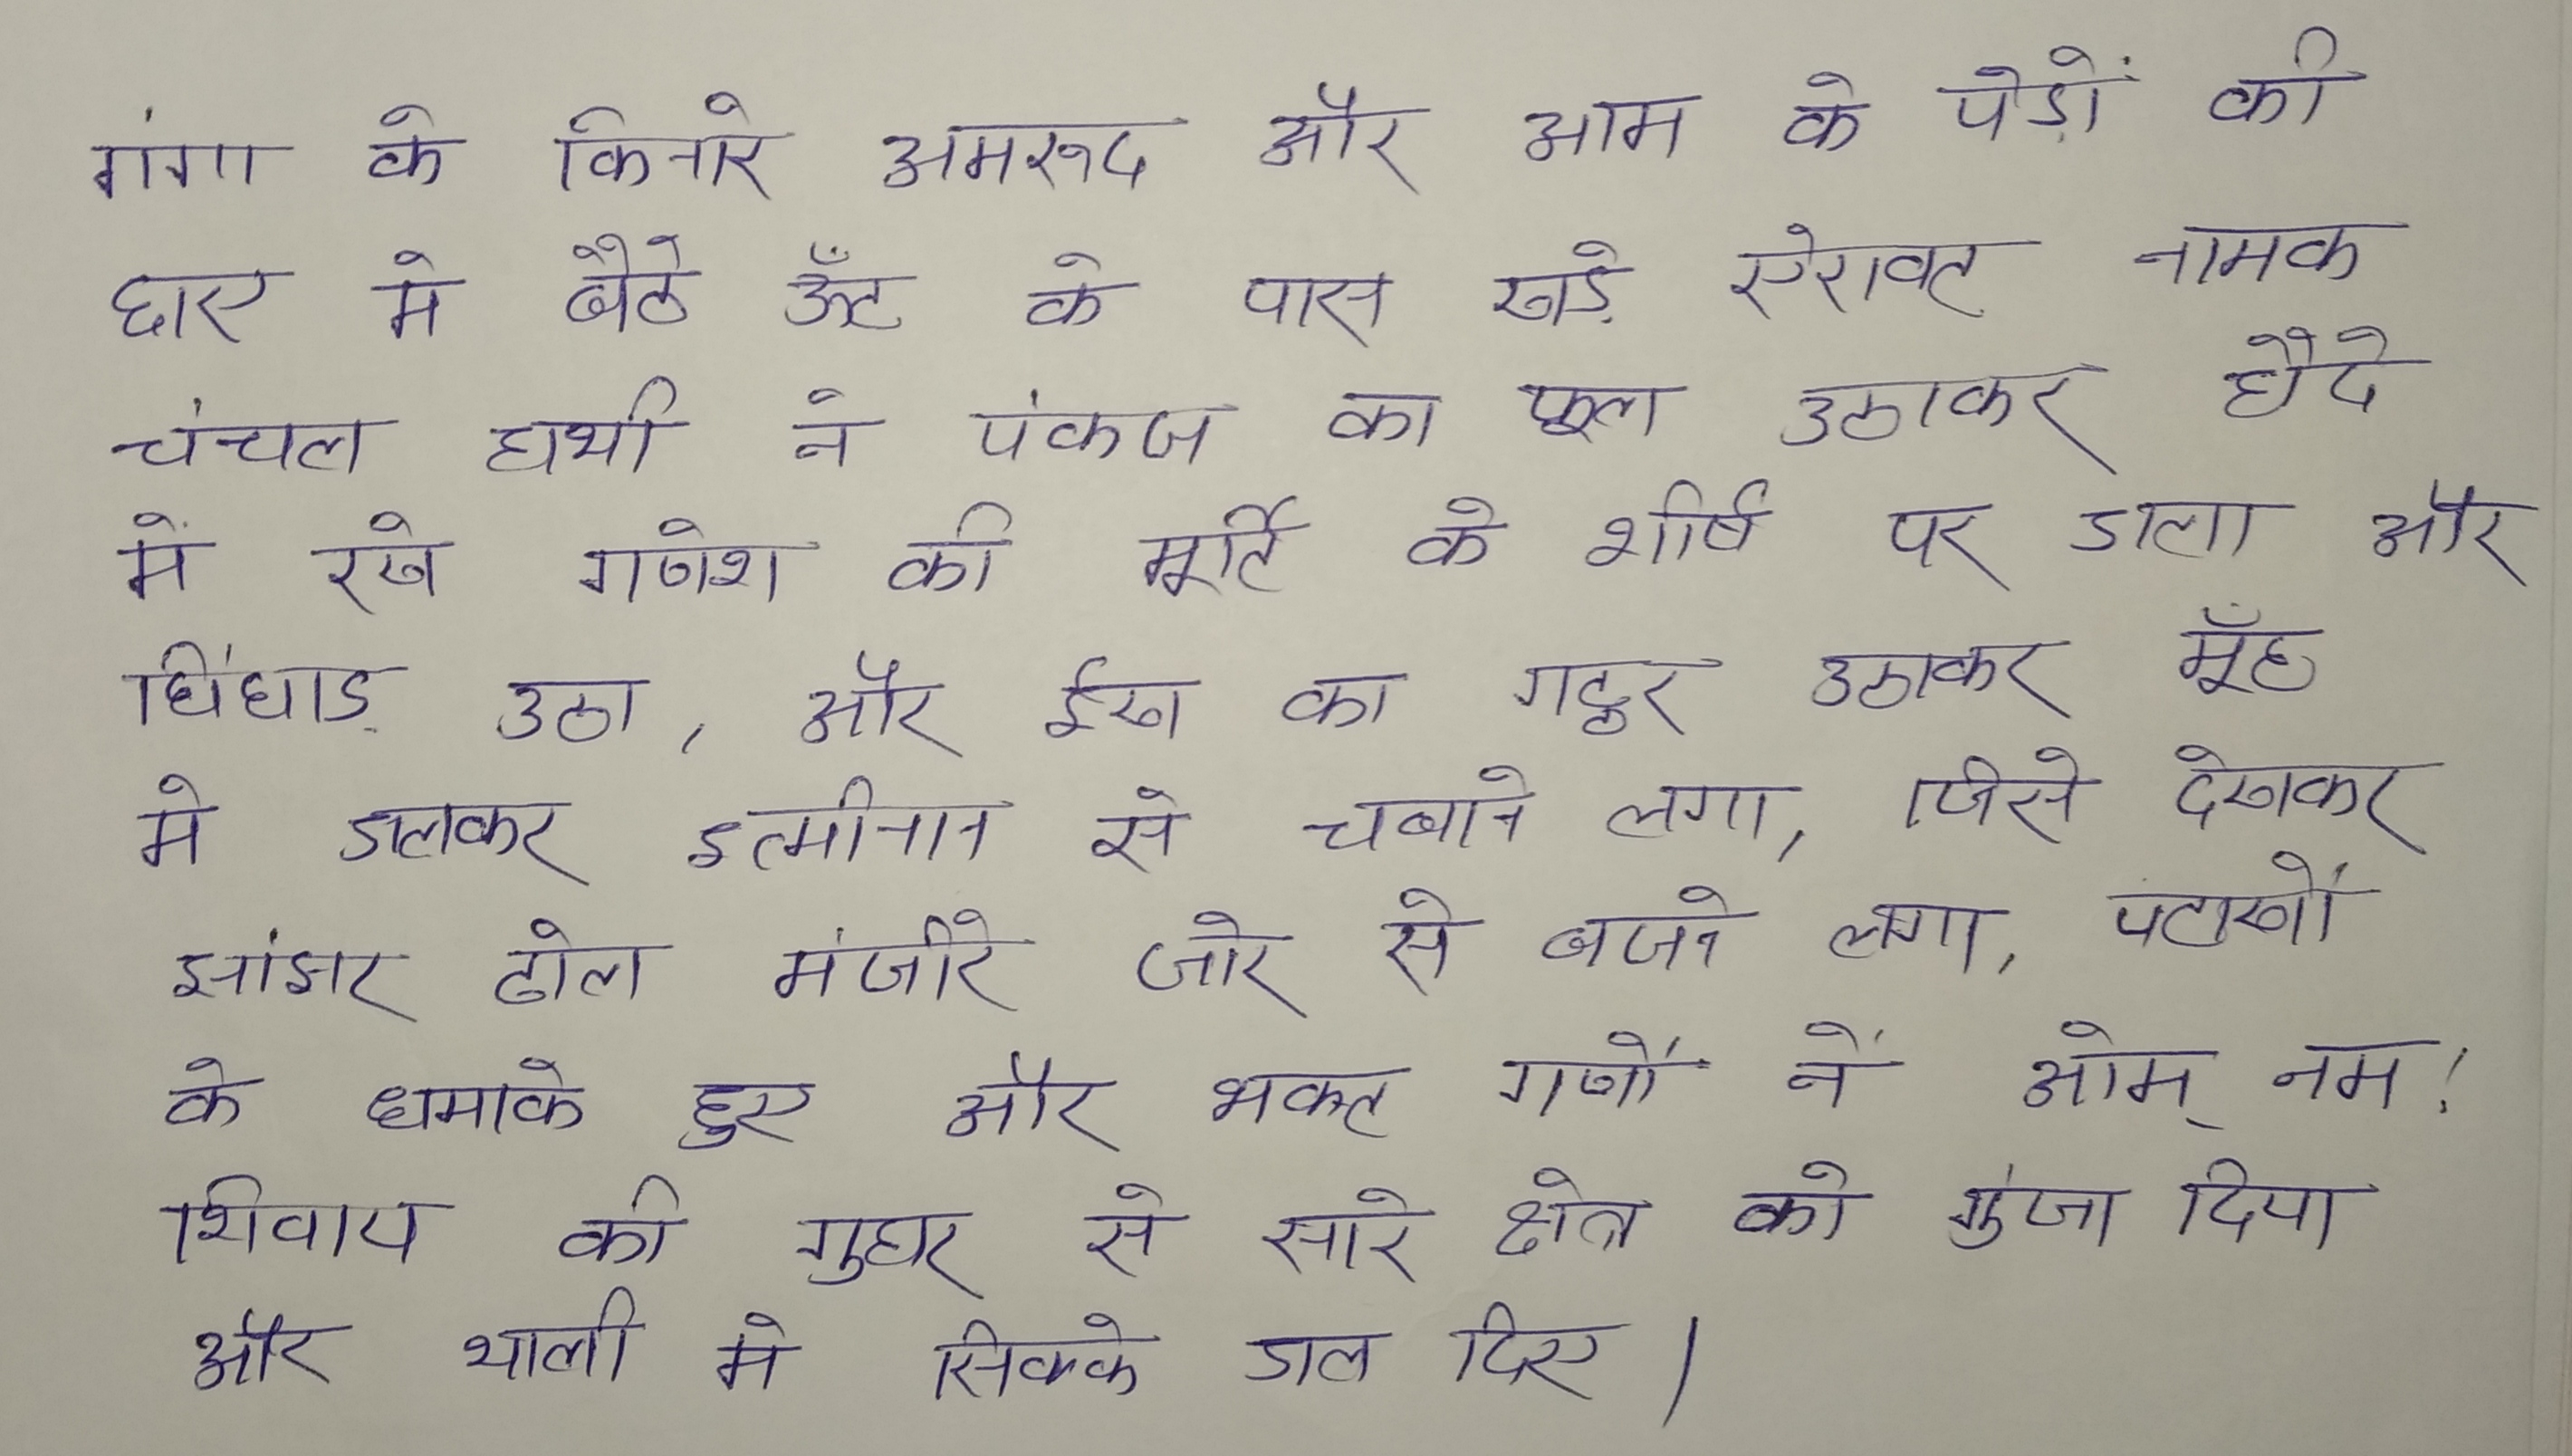 गंगा के किनारे अमरूद और आम के पेड़ों की
छाए मे बैठे ऊँट के पास खड़े ऐरावत नामक
चंचल हाथी ने पंकज का फूल उठाकर हौदे
में रखे गणेश की मूर्ति के शीर्ष पर डाला और
चिंघाड़ उठा, और ईख का गट्ठर उठाकर मूँह
मे डालकर इत्मीनान से चबाने लगा, जिसे देखकर
झांझर ढोल मंजीरे जोर से बजने लगा, पटाखों
के धमाके हुए और भक्त गणों नें ओम् नम:
शिवाय की गुहार से सारे क्षेत्र को गुंजा दिया
और थाली मे सिक्के डाल दिए।